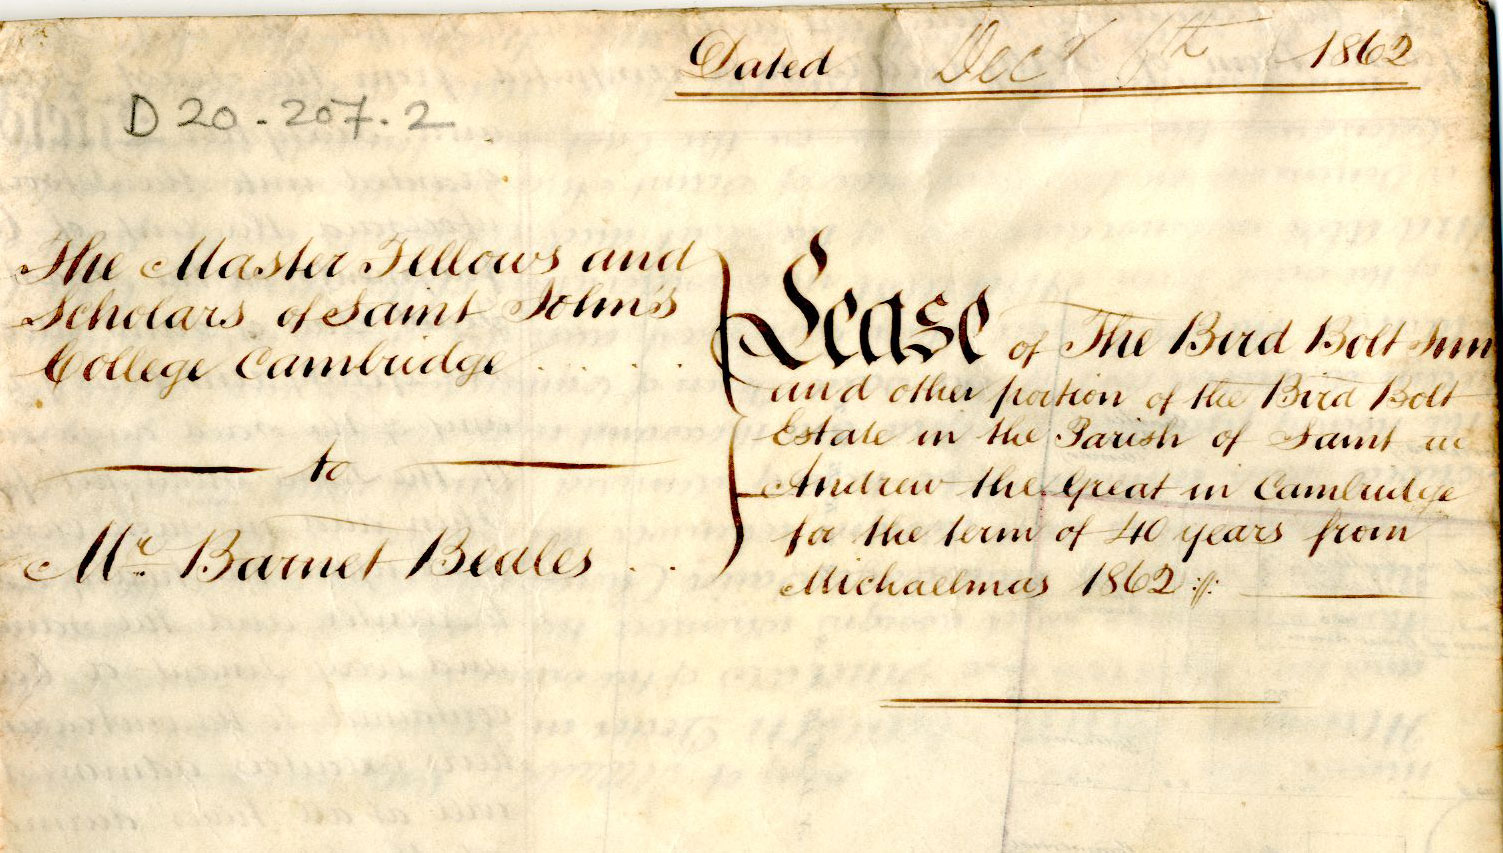 Dated Decr 1862
D20.207.2
The Master Fellows and
Scholars of Saint John's
College Cambridge . . . . .
to
Mr. Barnet Beales . . .
Lease of The Bird Bolt Inn
and other portion of the Bird Bolt
Estate in the Parish of Saint
Andrew the Great in Cambridge
for the term of 40 years from
Michaelmas 1862